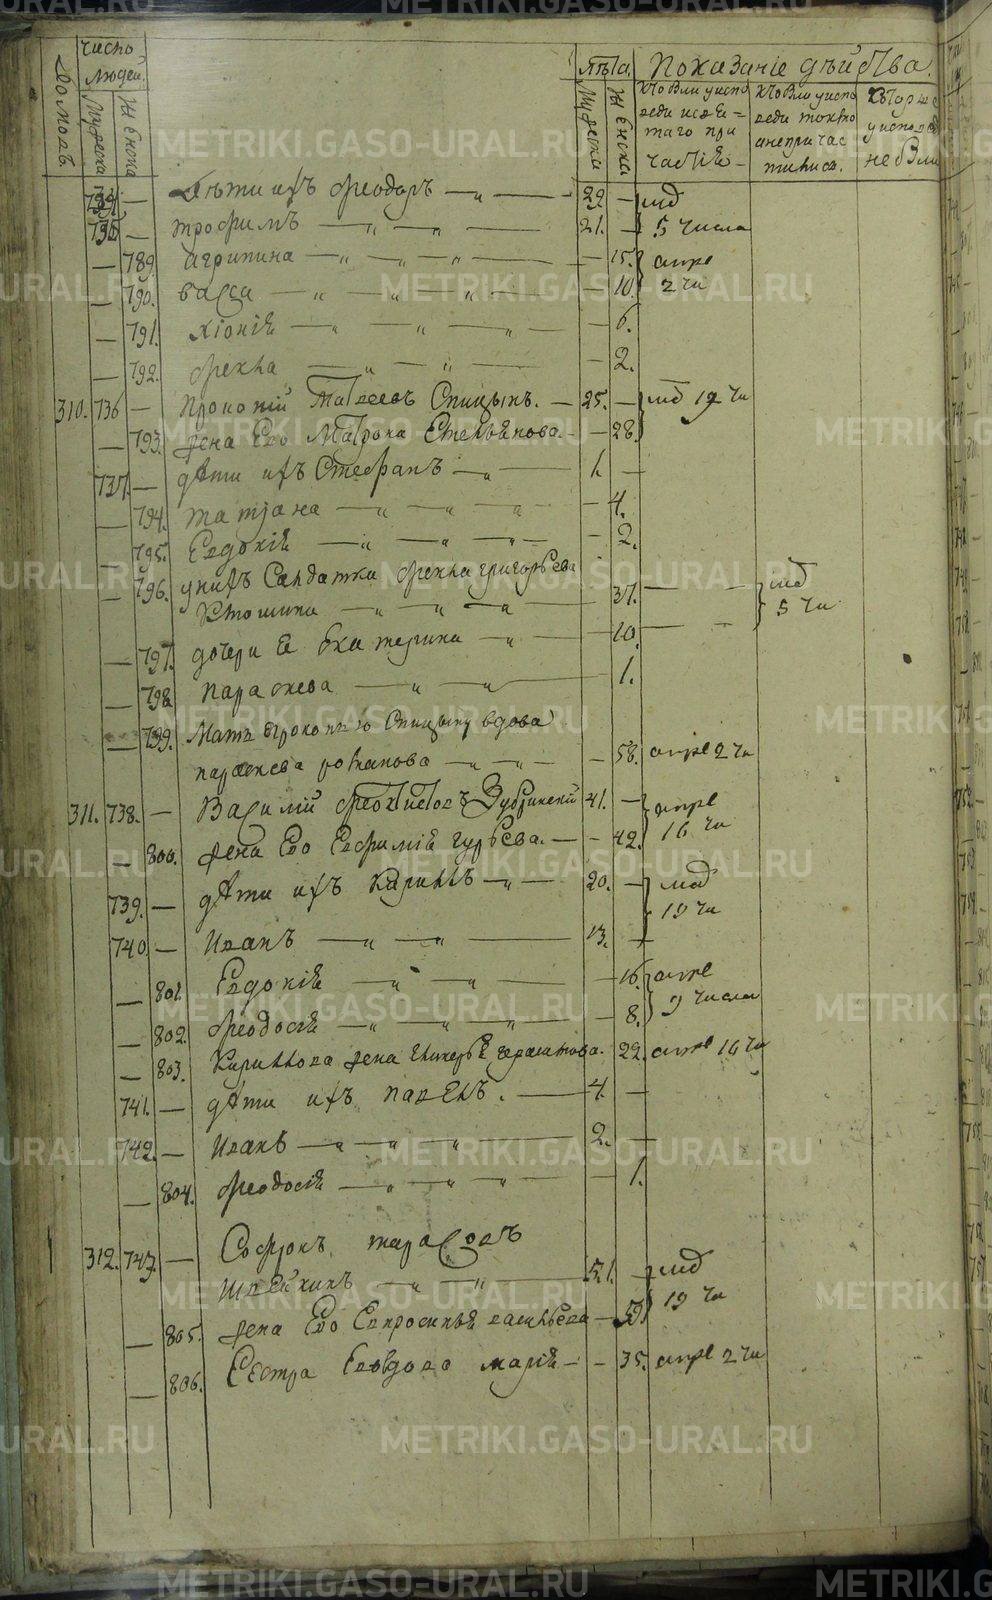 Домовъ.
число людей.
Мужеска
Женска
лѣта.
Мужеска
Женска
Показание дѣиства.
кто были у исповеди и святаго причастия
кто были у исповеди токмо а не причастились.
которые у исповеди не были
— дѣти ихъ Феодоръ — 22 — мар
— трофимъ — 21. — 5 числа
— 789. агрипина — 15. апре
— 790. васса — 10. 2 чи
— 791. хіонія — 6.
— 792. фекла — 2.
310. 736 — Прокопий Матвеевъ Спицынъ. — 25. — мар 19 чи
— 793. жена Его Матрона Степанова — 28.
737. — дѣти ихъ Стефанъ — 1. —
— 794. татіана — 4.
— 795. Евдокія — 2.
— 796. у нихъ Салдатка фекла григорьева
Ктошина — 37. — мар 5 чи
— 797. дочери Ея Екатерина — 10. —
— 798. параскева — 1.
— 799. Мать Прокопью Спицыну вдова
параскева романова — 58. апре 2 чи
311. 738. — Василий феоктистовъ Зубринский 41. — апре
— 800. жена Его Евфимія гурьева. — 42. 16 чи
739. — дѣти ихъ Кирилъ — 20. — мар
740. — Иванъ — 13. — 19 чи
— 801. Евдокія — 16. апре
— 802. феодосія — 8. 9 числа
— 803. Кирилова жена гликерья герасимова. 22. апре 16 чи
741. — дѣти ихъ павелъ. — 4. —
742. — Иванъ — 2. —
— 804. феодосія — 1.
312. 743. — Софронъ тарасовъ
Швейкинъ — 51. — мар
— 805. жена Его Евпросинья васильева — 50 19 чи
— 806. Сестра Его вдова марія — 35. апре 2 чи
METRIKI.GASO-URAL.RU